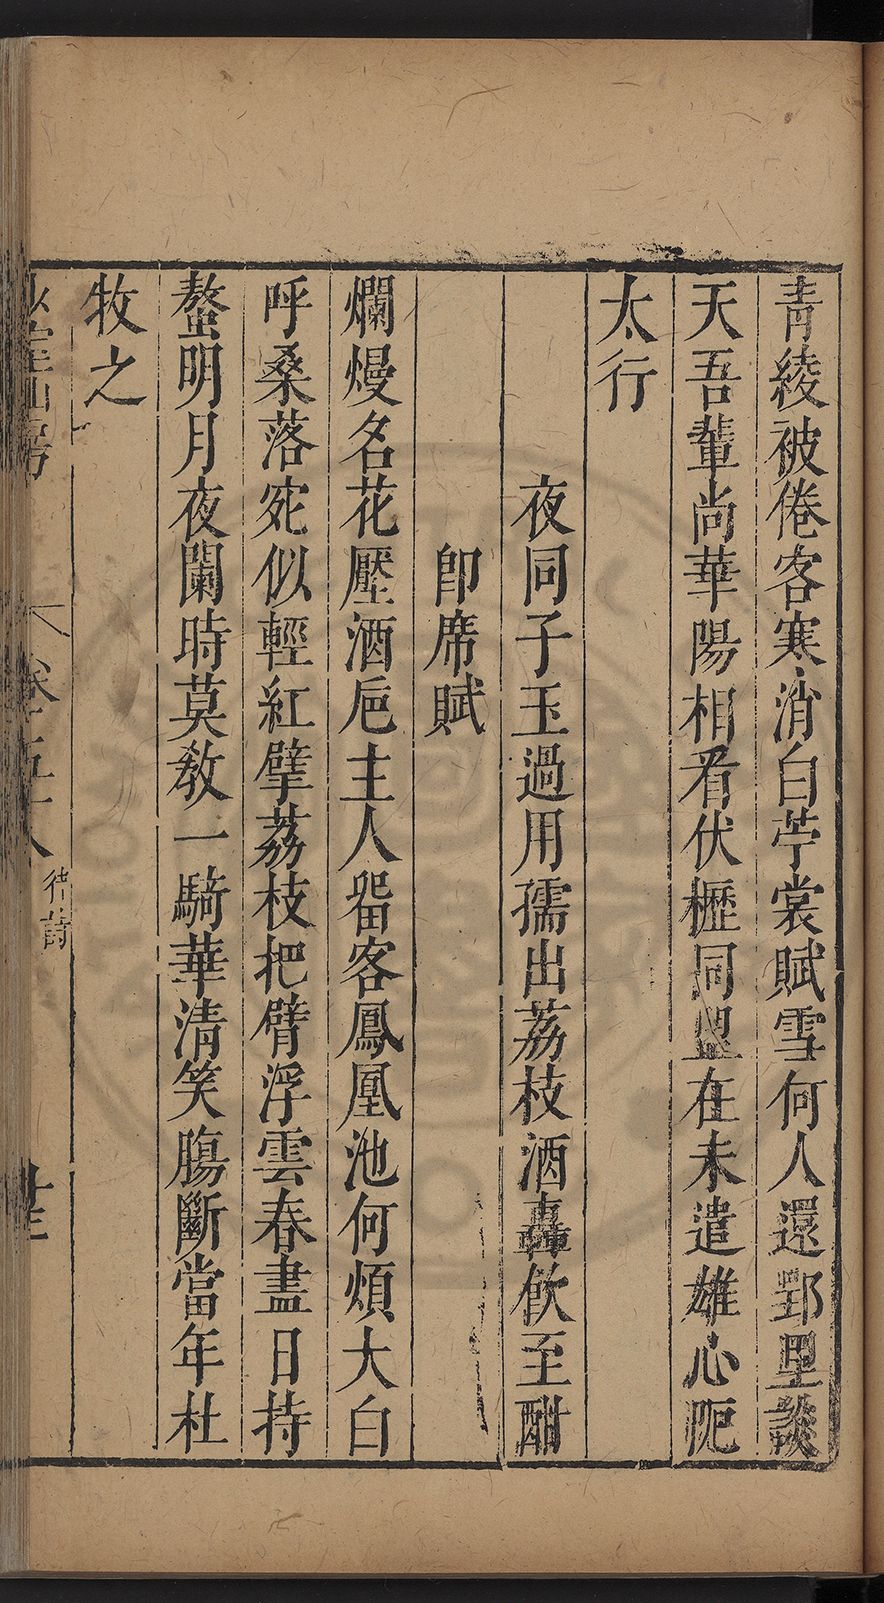 青綾被倦客寒消白苧裳賦雪何人還郢里談
天吾輩尚華陽相看伏櫪同盟在未遣雄心阨
太行
夜同子玉過用孺出荔枝酒轟飲至酣
卽席賦
爛熳名花壓酒巵主人畱客鳳凰池何煩大白
呼桑落宛似輕紅擘荔枝把臂浮雲春盡日持
螯明月夜闌時莫教一騎華清笑腸斷當年杜
牧之
少室山房
卷五十八
律詩